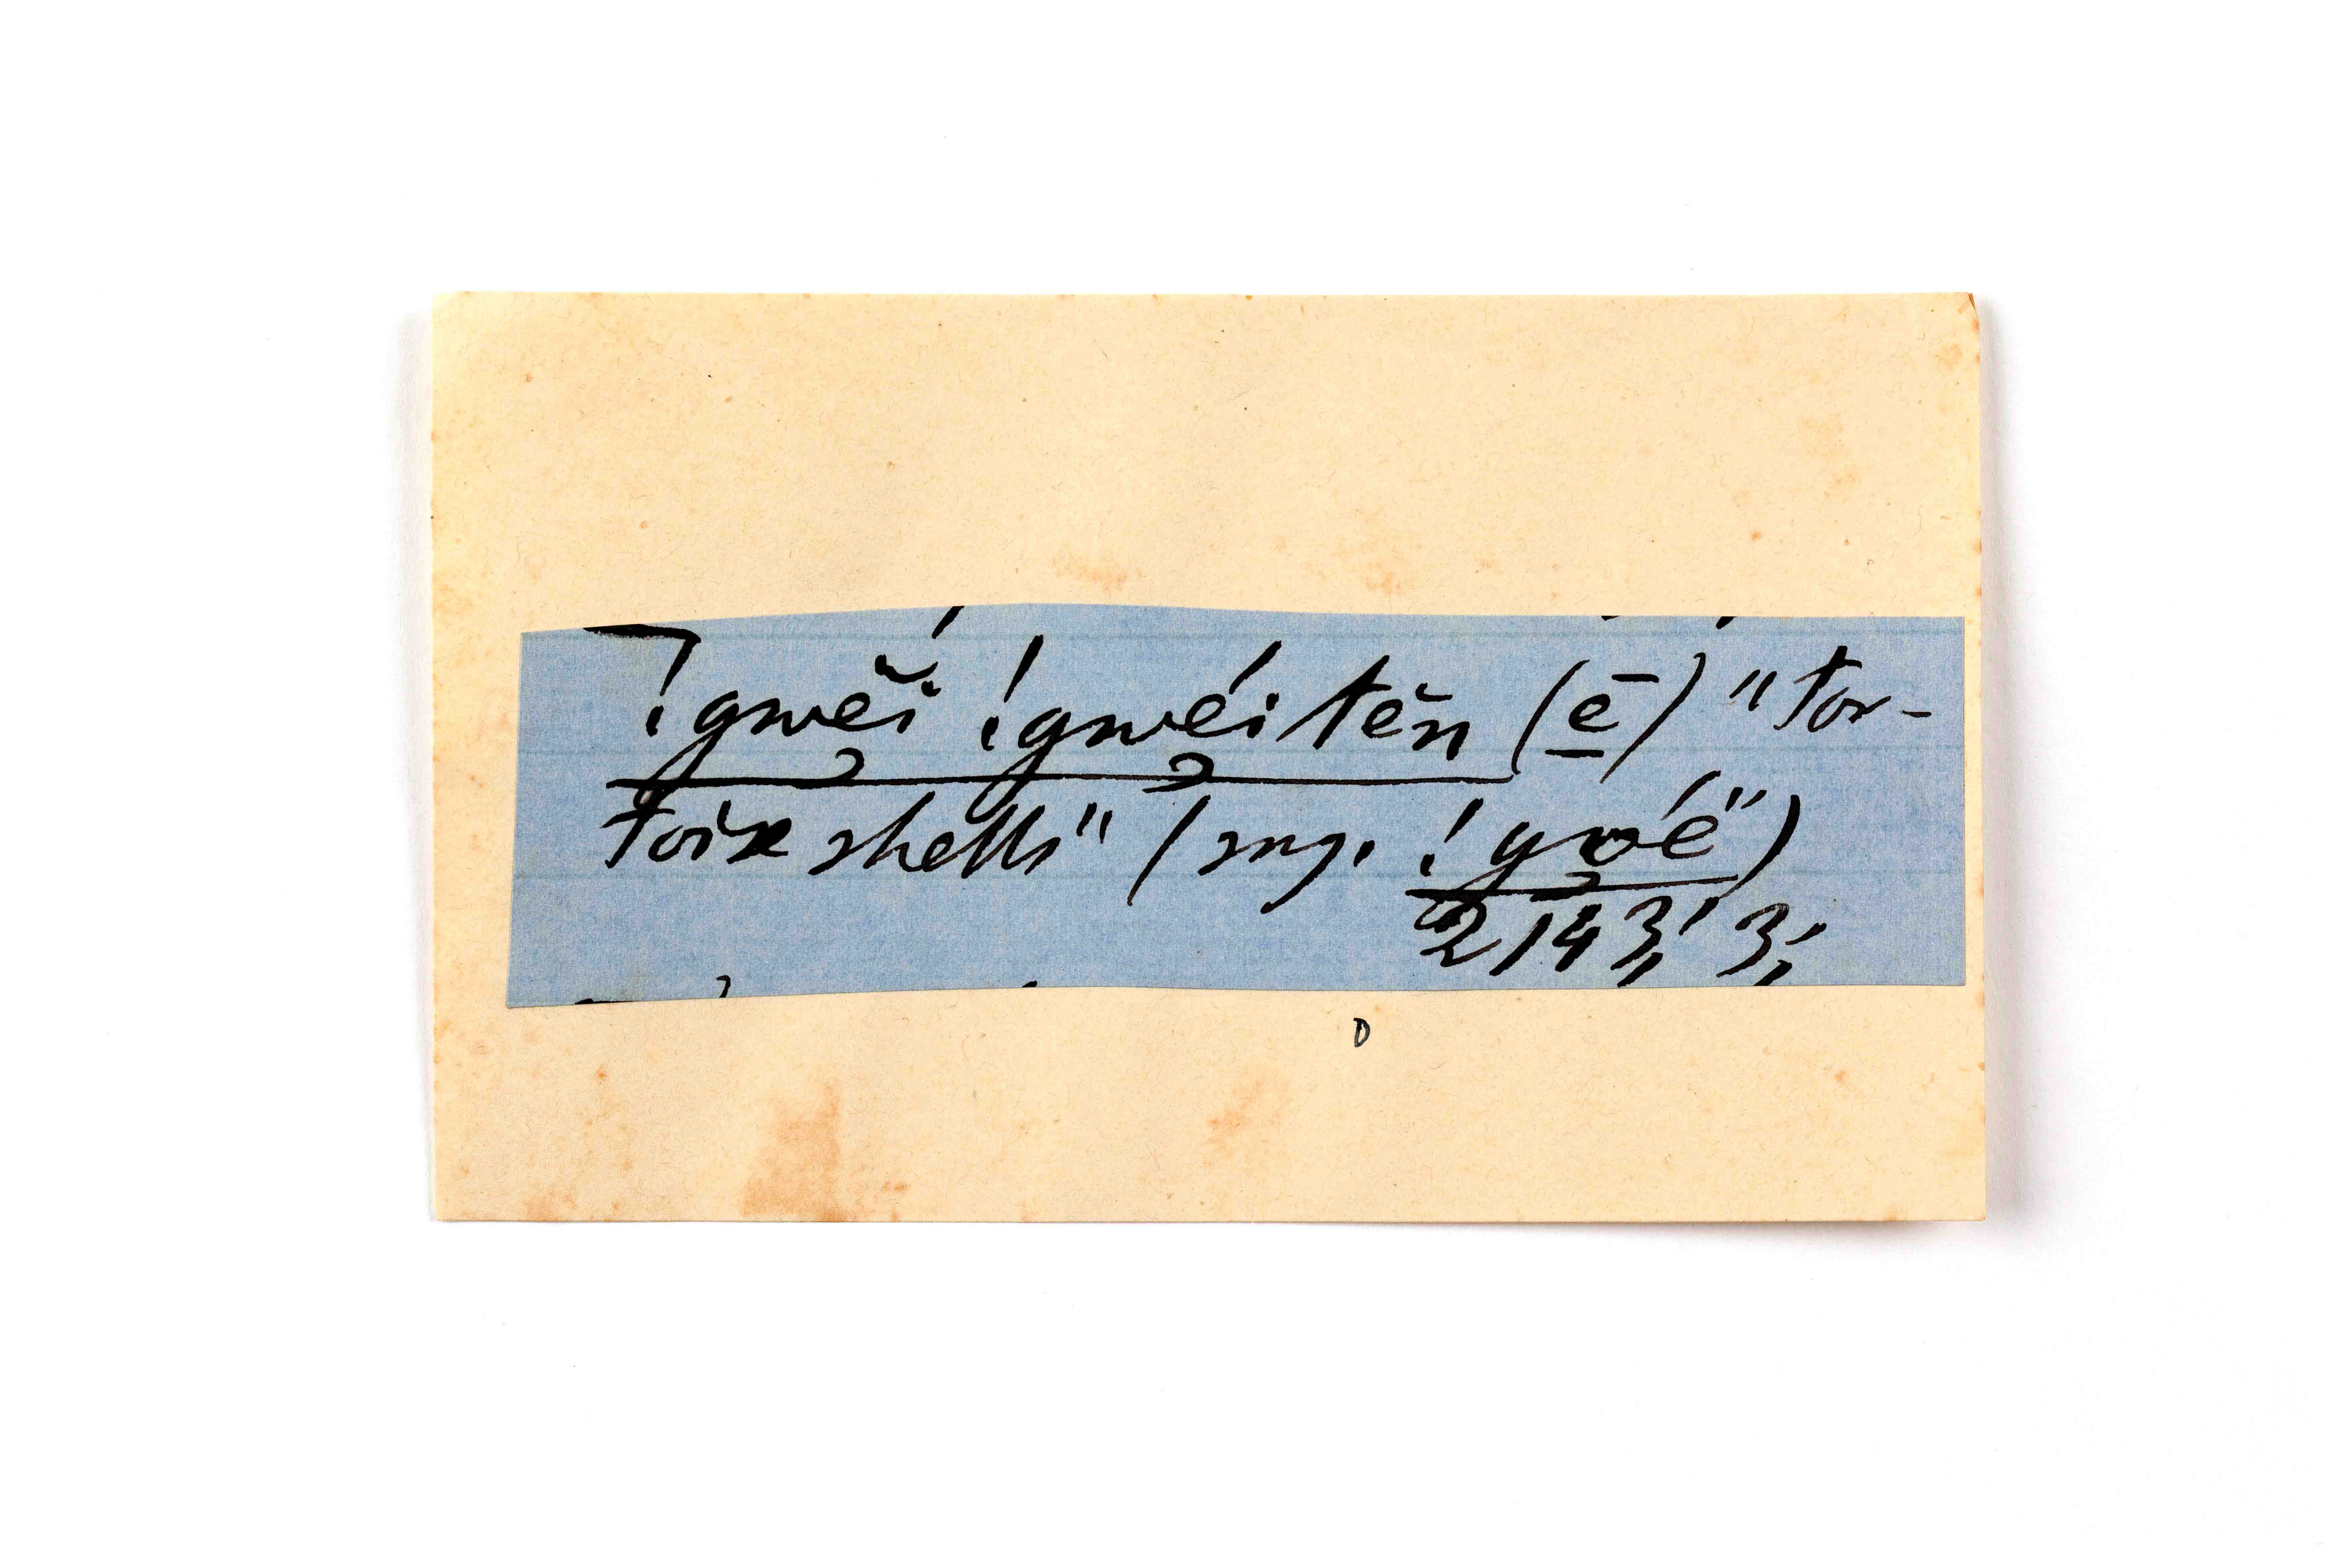 !gwĕi !gwéitĕn (ē) "tor-
toise shells" (sing. !gwé")
2143,' 3,'
D